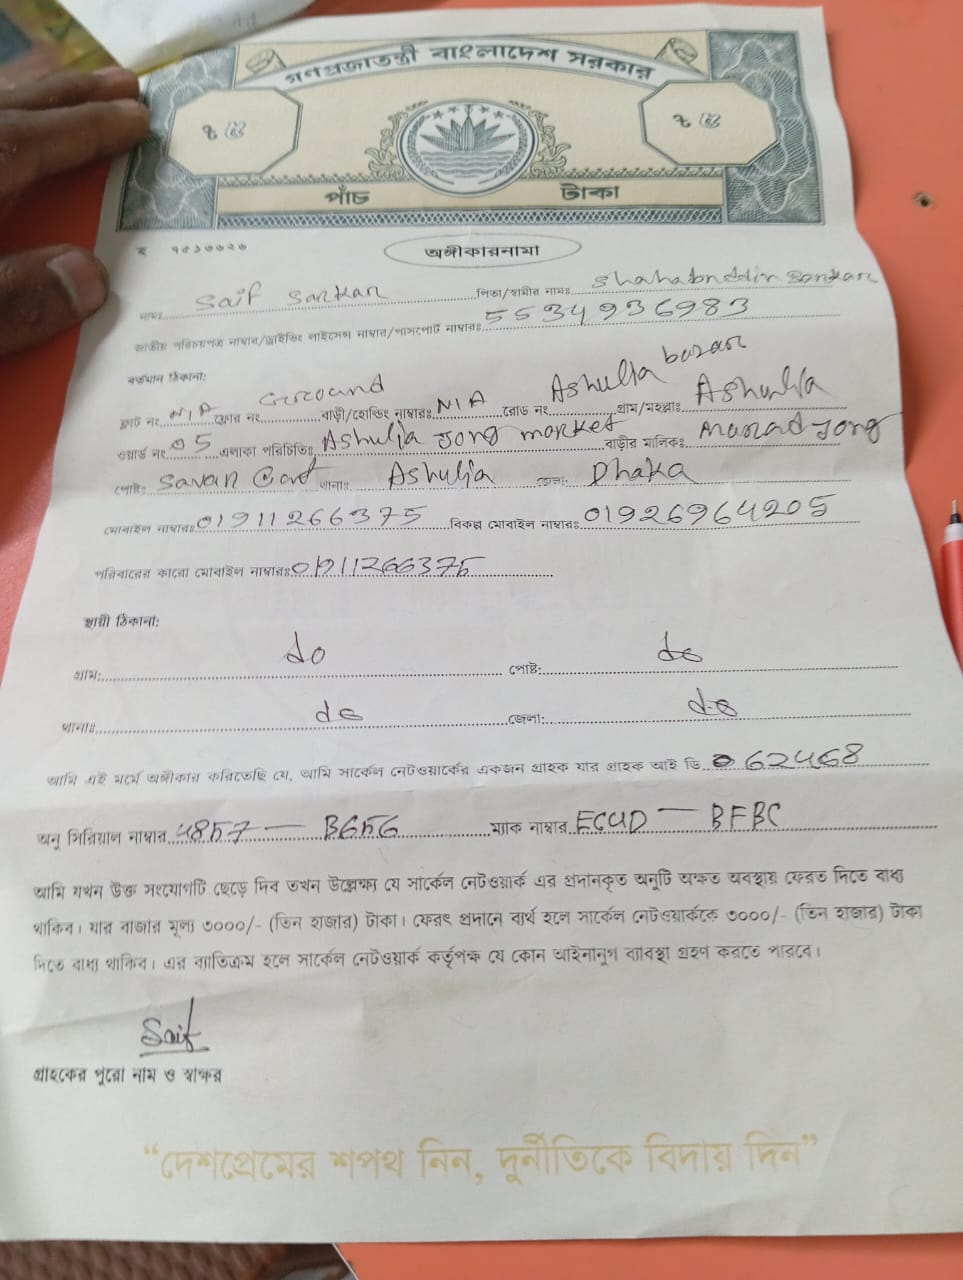 গণপ্রজাতন্ত্রী বাংলাদেশ সরকার
৳ ৫ ৳ ৫
পাঁচ টাকা
অঙ্গীকারনামা
নামঃ Saif Sarkar পিতা/স্বামীর নামঃ Shahabuddin Sarkar
জাতীয় পরিচয়পত্র নাম্বার/ড্রাইভিং লাইসেন্স নাম্বার/পাসপোর্ট নাম্বারঃ 5534936983
বর্তমান ঠিকানা:
ফ্লাট নং N/A ফ্লোর নং Ground বাড়ী/হোল্ডিং নাম্বারঃ N/A রোড নং Ashulia bazar গ্রাম/মহল্লাঃ Ashulia
ওয়ার্ড নং 05 এলাকা পরিচিতিঃ Ashulia Jong market বাড়ীর মালিকঃ Jong
পোষ্টঃ Savar থানাঃ Ashulia জেলা: Dhaka
মোবাইল নাম্বারঃ 01911266375 বিকল্প মোবাইল নাম্বারঃ 01926964205
পরিবারের কারো মোবাইল নাম্বারঃ 01911266375
স্থায়ী ঠিকানা:
গ্রাম: do পোষ্ট: do
থানাঃ do জেলা: do
আমি এই মর্মে অঙ্গীকার করিতেছি যে, আমি সার্কেল নেটওয়ার্কের একজন গ্রাহক যার গ্রাহক আই ডি 062468
অনু সিরিয়াল নাম্বার 4857 — B656 ম্যাক নাম্বার ECUD — BFBC
আমি যখন উক্ত সংযোগটি ছেড়ে দিব তখন উল্লেক্ষ্য যে সার্কেল নেটওয়ার্ক এর প্রদানকৃত অনুটি অক্ষত অবস্থায় ফেরত দিতে বাধ্য
থাকিব। যার বাজার মূল্য ৩০০০/- (তিন হাজার) টাকা। ফেরৎ প্রদানে ব্যর্থ হলে সার্কেল নেটওয়ার্ককে ৩০০০/- (তিন হাজার) টাকা
দিতে বাধ্য থাকিব। এর ব্যাতিক্রম হলে সার্কেল নেটওয়ার্ক কর্তৃপক্ষ যে কোন আইনানুগ ব্যাবস্থা গ্রহণ করতে পারবে।
Saif
গ্রাহকের পুরো নাম ও স্বাক্ষর
“দেশপ্রেমের শপথ নিন, দুর্নীতিকে বিদায় দিন”